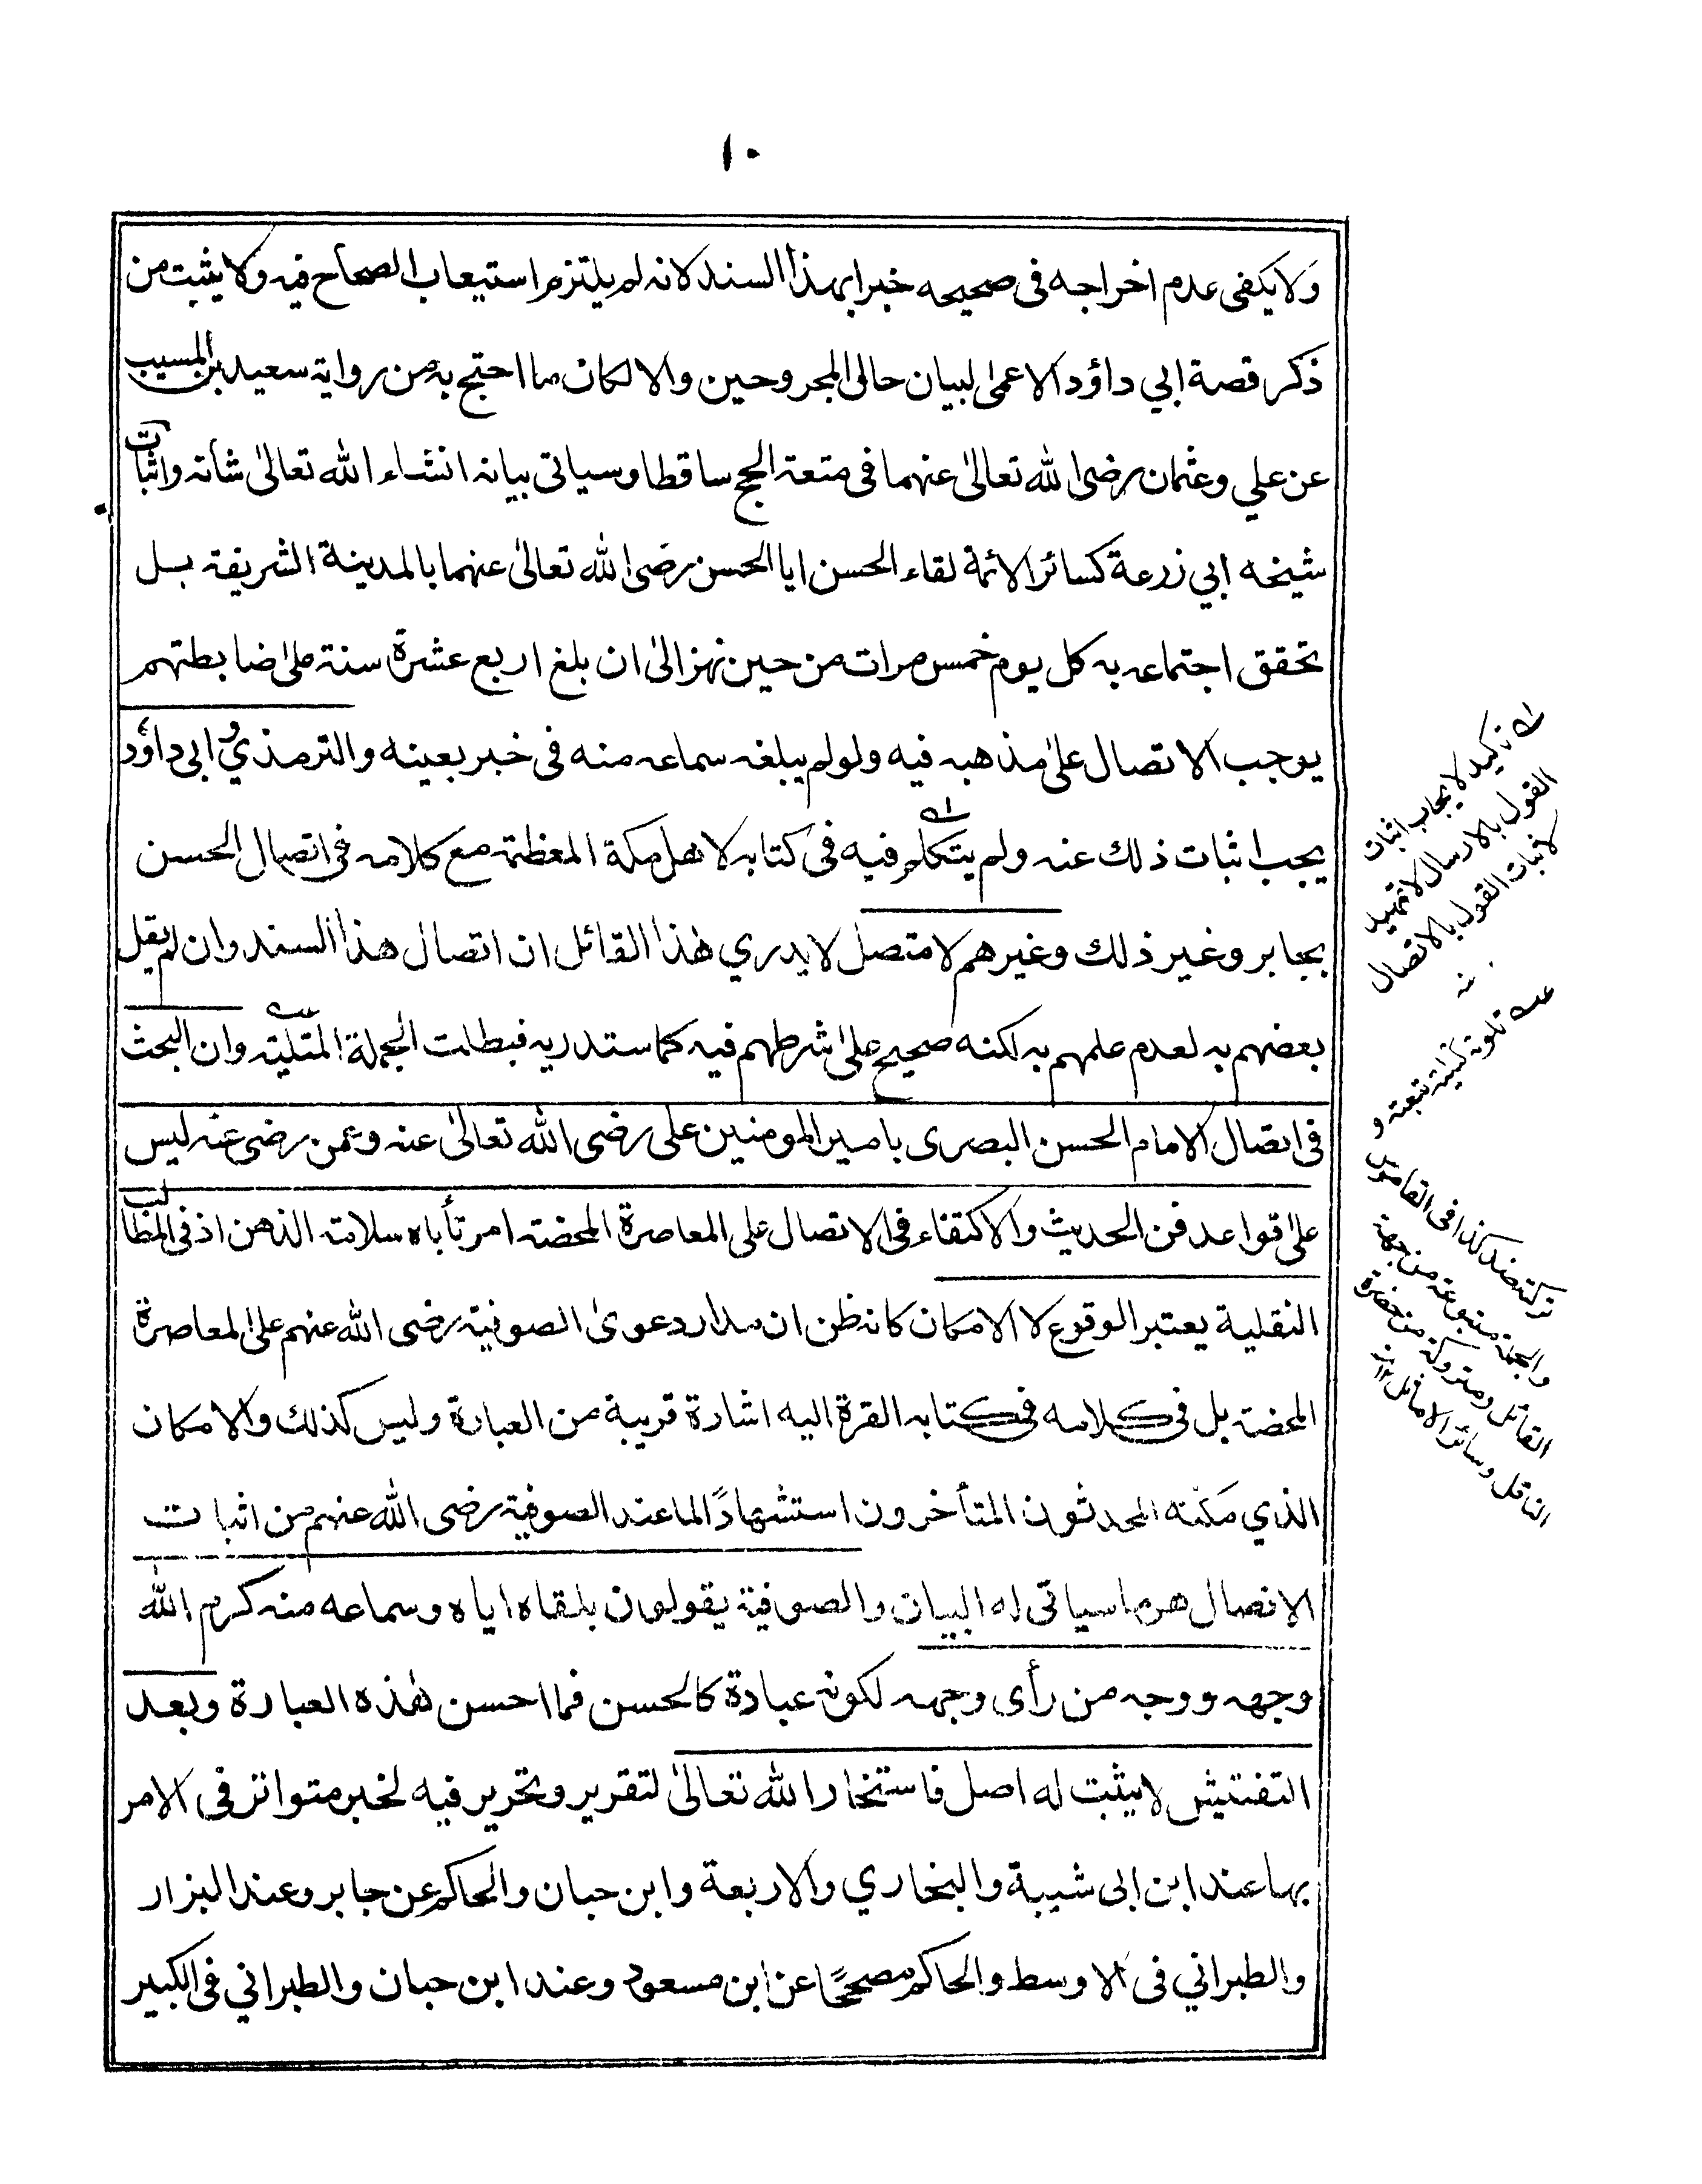 ١٠
ولا يكفى عدم اخراجه فى صحيحه خبرا بهذا السند لانه لم يلتزم استيعاب الصحاح فيه ولا يثبت من
ذكر قصة ابي داؤد الاعمىٰ لبيان حالى المجروحين والا لكان ما احتج به من رواية سعيد بن المسيب
عن علي وعثمان رضى الله تعالىٰ عنهما فى متعة الحج ساقطا وسياتى بيانه انشاء الله تعالىٰ شانه واثبات
شيخه ابي زرعة كسائر الائمة لقاء الحسن ابا الحسن رضى الله تعالىٰ عنهما بالمدينة الشريفة بل
تحقق اجتماعه به كل يوم خمس مرات من حين نهز الىٰ ان بلغ اربع عشرة سنة علىٰ ضابطتهم
يوجب الاتصال علىٰ مذهبه فيه ولو لم يبلغه سماعه منه فى خبر بعينه والترمذي وابى داؤد
يجب اثبات ذلك عنه ولم يتكلم فيه فى كتابه لاهل مكة المعظمة مع كلامه فى اتصال الحسن
بجابر وغير ذلك وغيرهم لا متصل لا يدري هٰذا القائل ان اتصال هذا السند وان لم يقل
بعضهم به لعدم علمهم به لكنه صحيح علىٰ شرطهم فيه كما ستدريه فبطلت الجملة المتليته وان البحث
فى اتصال الامام الحسن البصرى بامير المومنين على رضى الله تعالىٰ عنه وعمن رضى عنه ليس
علىٰ قواعد فن الحديث والاكتفاء فى الاتصال على المعاصرة المحضة امر تأباه سلامة الذهن اذ فى المطالب
النقلية يعتبر الوقوع لا الامكان كانه ظن ان مدار دعوىٰ الصوفية رضى الله عنهم على المعاصرة
المحضة بل فى كلامه فى كتابه القرة اليه اشارة قريبة من العبارة وليس كذلك والامكان
الذي مكنه المحدثون المتأخرون استشهادًا لما عند الصوفية رضى الله عنهم من اثبات
الاتصال هو ما سياتى له البيان والصوفية يقولون بلقاه اياه وسماعه منه كرم الله
وجهه ووجه من رأى وجهه لكونه عبادة كالحسن فما احسن هٰذه العبارة وبعد
التفتيش لا يثبت له اصل فاستخار الله تعالىٰ لتقرير وتحرير فيه لخبر متواتر فى الامر
بها عند ابن ابى شيبة والبخاري والاربعة وابن حبان والحاكم عن جابر وعند البزار
والطبراني فى الاوسط والحاكم مصححًا عن ابن مسعود وعند ابن حبان والطبراني فى الكبير
تاكيد لايجاب اثبات
القول بالارسال لا تمهيد
لاثبات القول بالاتصال
تلوته كتليته تبعته و
تركته ضد كذا فى القاموس
والجملة متبوعة من جهة
القائل ومتروكة من حضرة
الناقل وسائر الاماثل